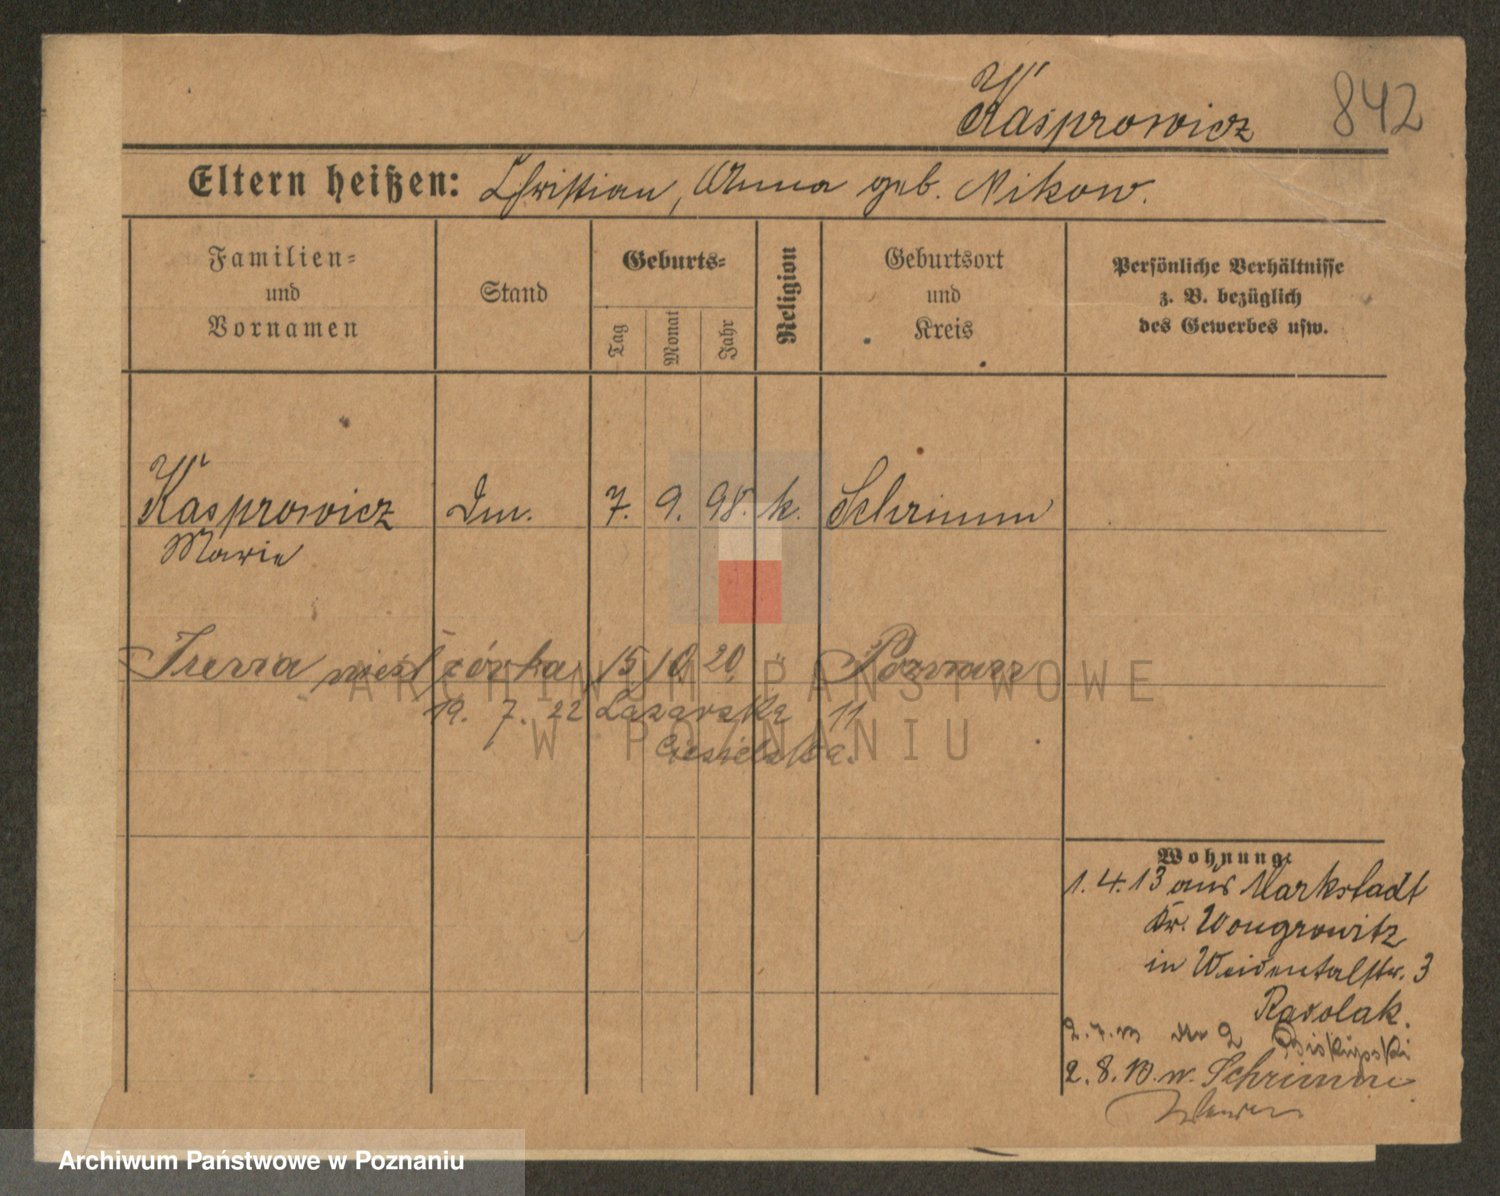 Kasprowicz 842
Eltern heißen: Christian, Anna geb. Nikow.
Familien=
und
Vornamen
Stand
Geburts=
Tag
Monat
Jahr
Religion
Geburtsort
und
Kreis
Persönliche Verhältnisse
z. B. bezüglich
des Gewerbes usw.
Kasprowicz 7. 9. 98. k. Schrimm
Marie
15 10 20
19. 7. 22 Łazarska 11
Ciesielska.
ARCHIWUM PAŃSTWOWE
W POZNANIU
Wohnung:
1. 4. 13 aus Markstadt
Kr. Wongrowitz
in Weidentalstr. 3
Ratolak.
2. 7. 13 2 Biskupski
2. 8. 13. n. Schrimm
Archiwum Państwowe w Poznaniu